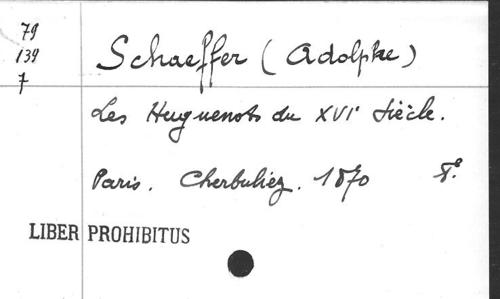 79
139
7
Schaeffer (Adolphe)
Les Huguenots du XVIe Siècle.
Paris. Cherbuliez. 1870 8°.
LIBER PROHIBITUS